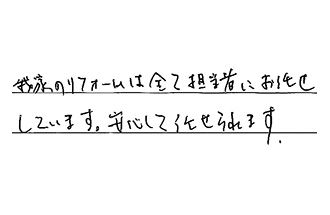 我家のリフォームは全て担当者にお任せ
しています。安心して任せられます.